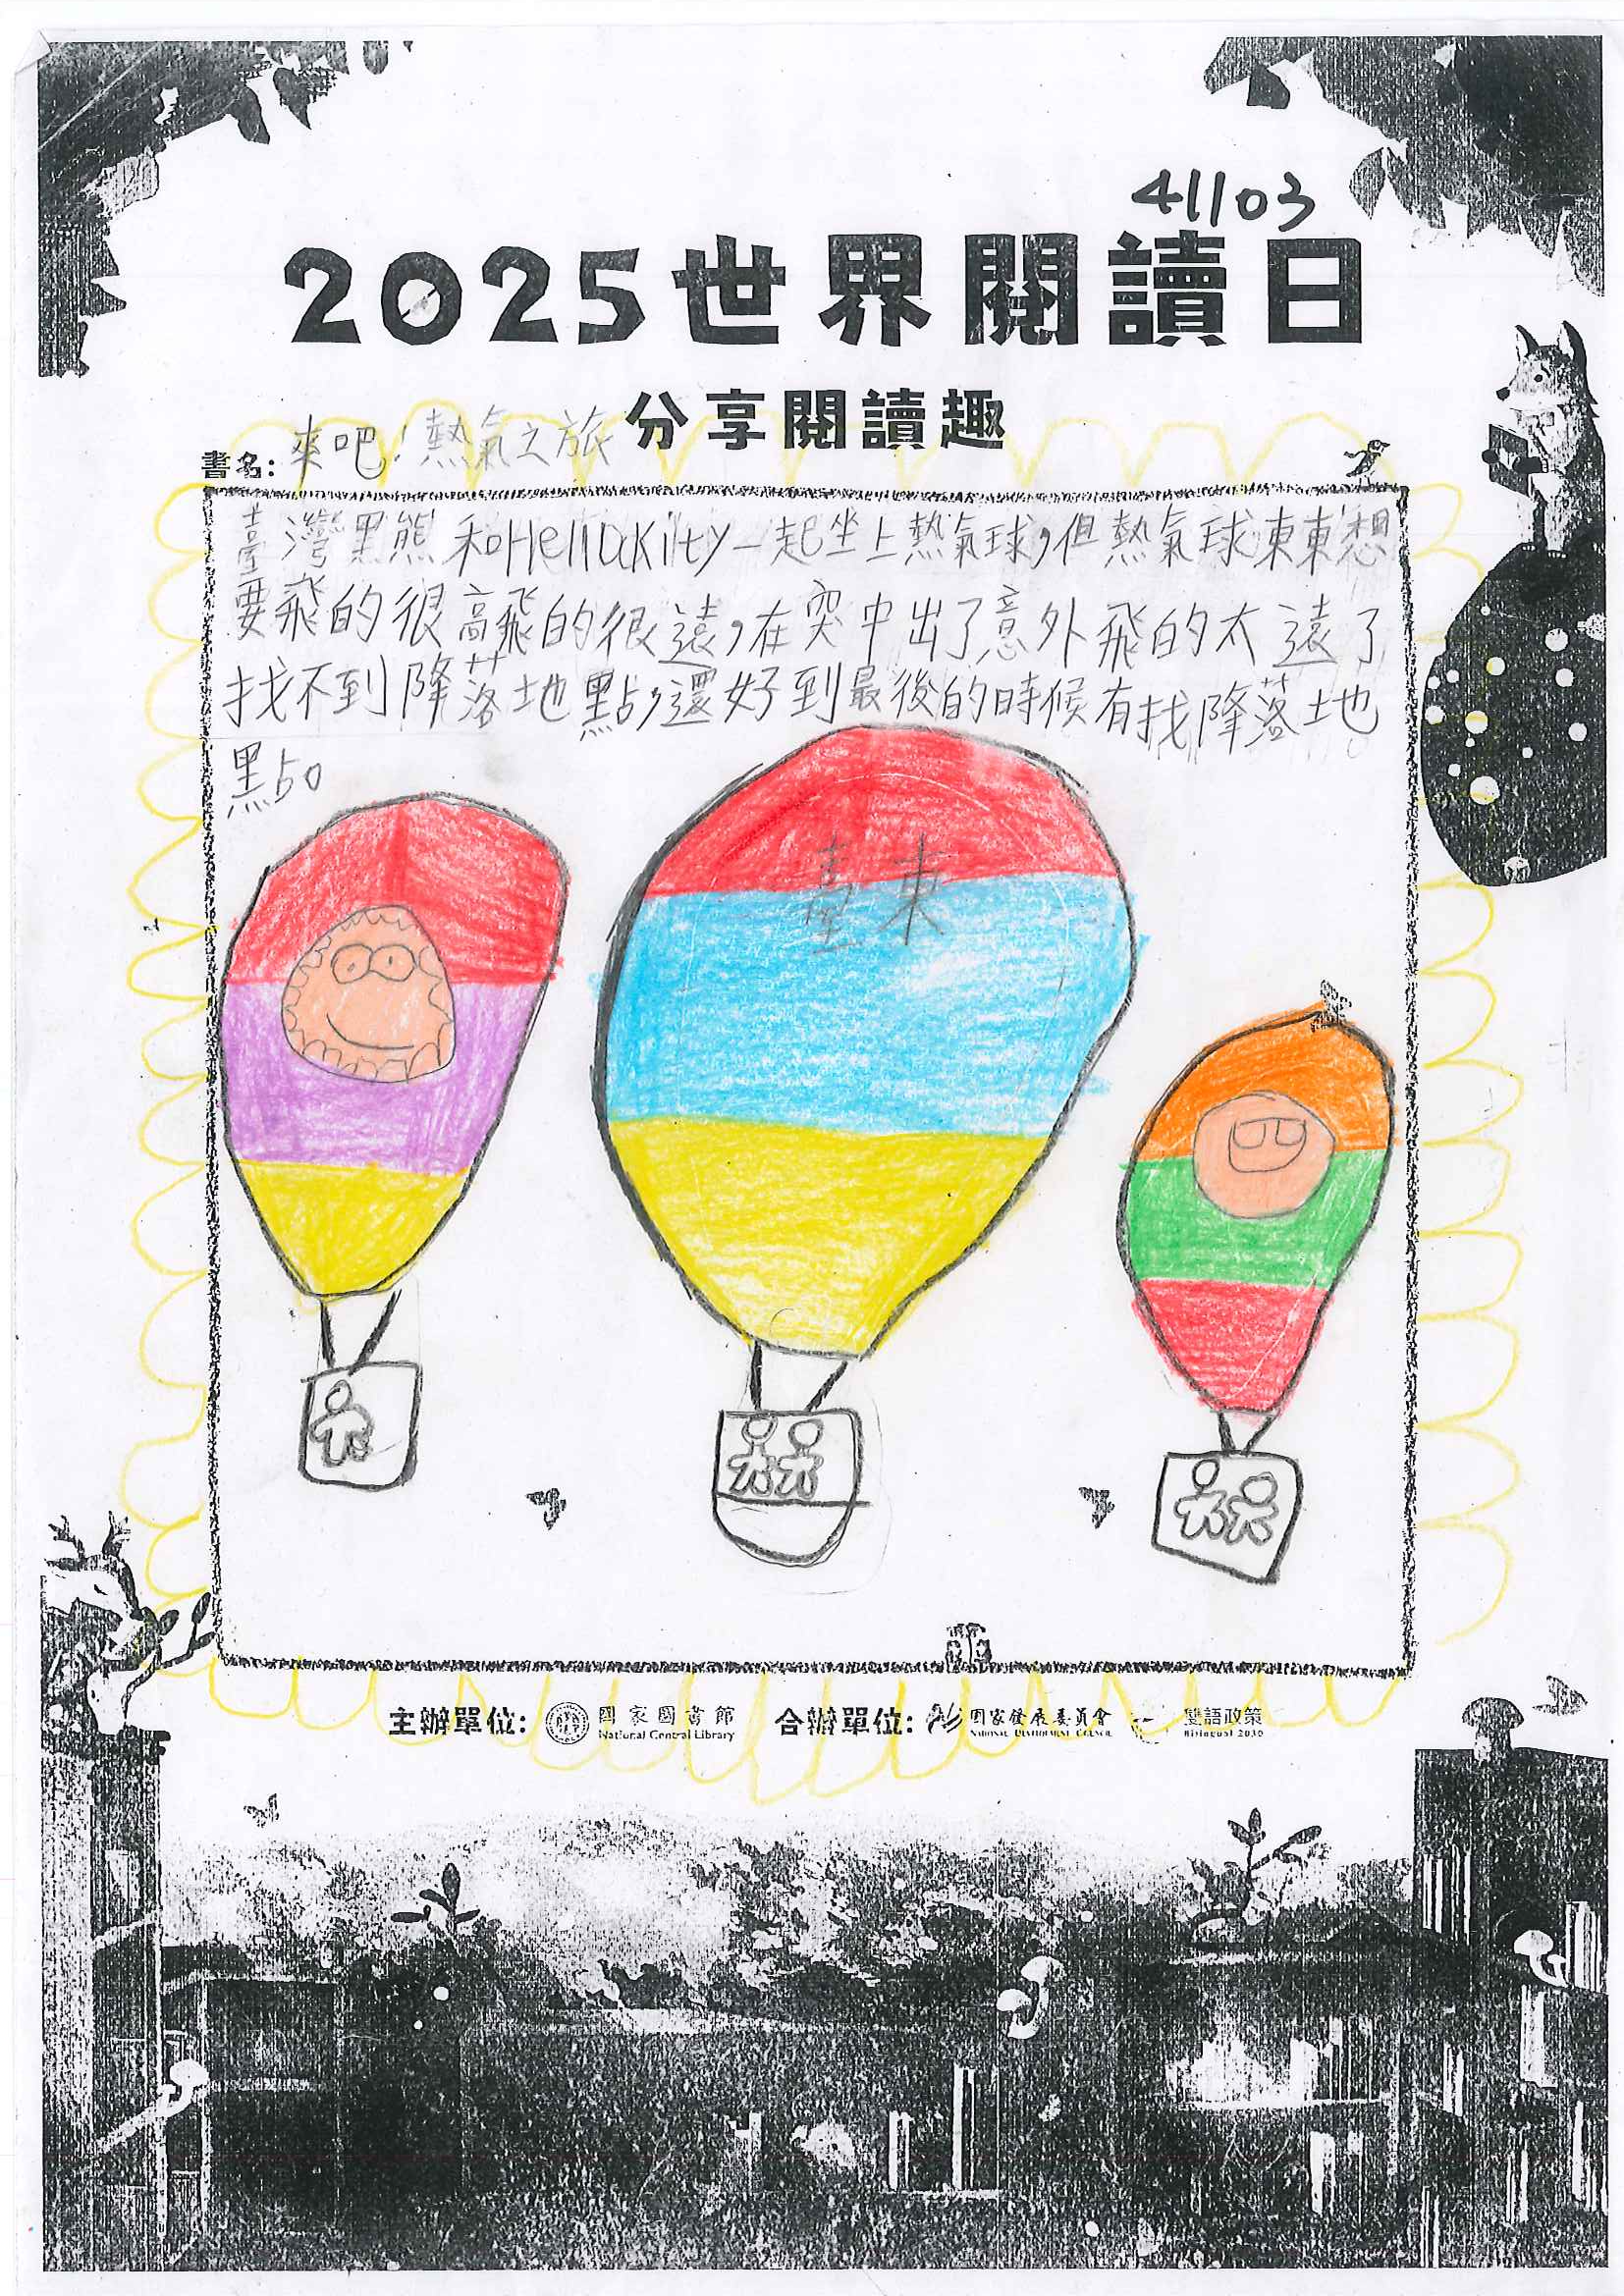 41103
2025世界閱讀日
分享閱讀趣
書名:來吧!熱氣之旅
臺灣黑熊和HelloKitty一起坐上熱氣球,但熱氣球東東想
要飛的很高飛的很遠,在突中出了意外飛的太遠了
找不到降落地點,還好到最後的時候有找降落地
點。
臺東
主辦單位: 國家圖書館 合辦單位: 國家發展委員會 雙語政策
National Central Library NATIONAL DEVELOPMENT COUNCIL Bilingual 2030